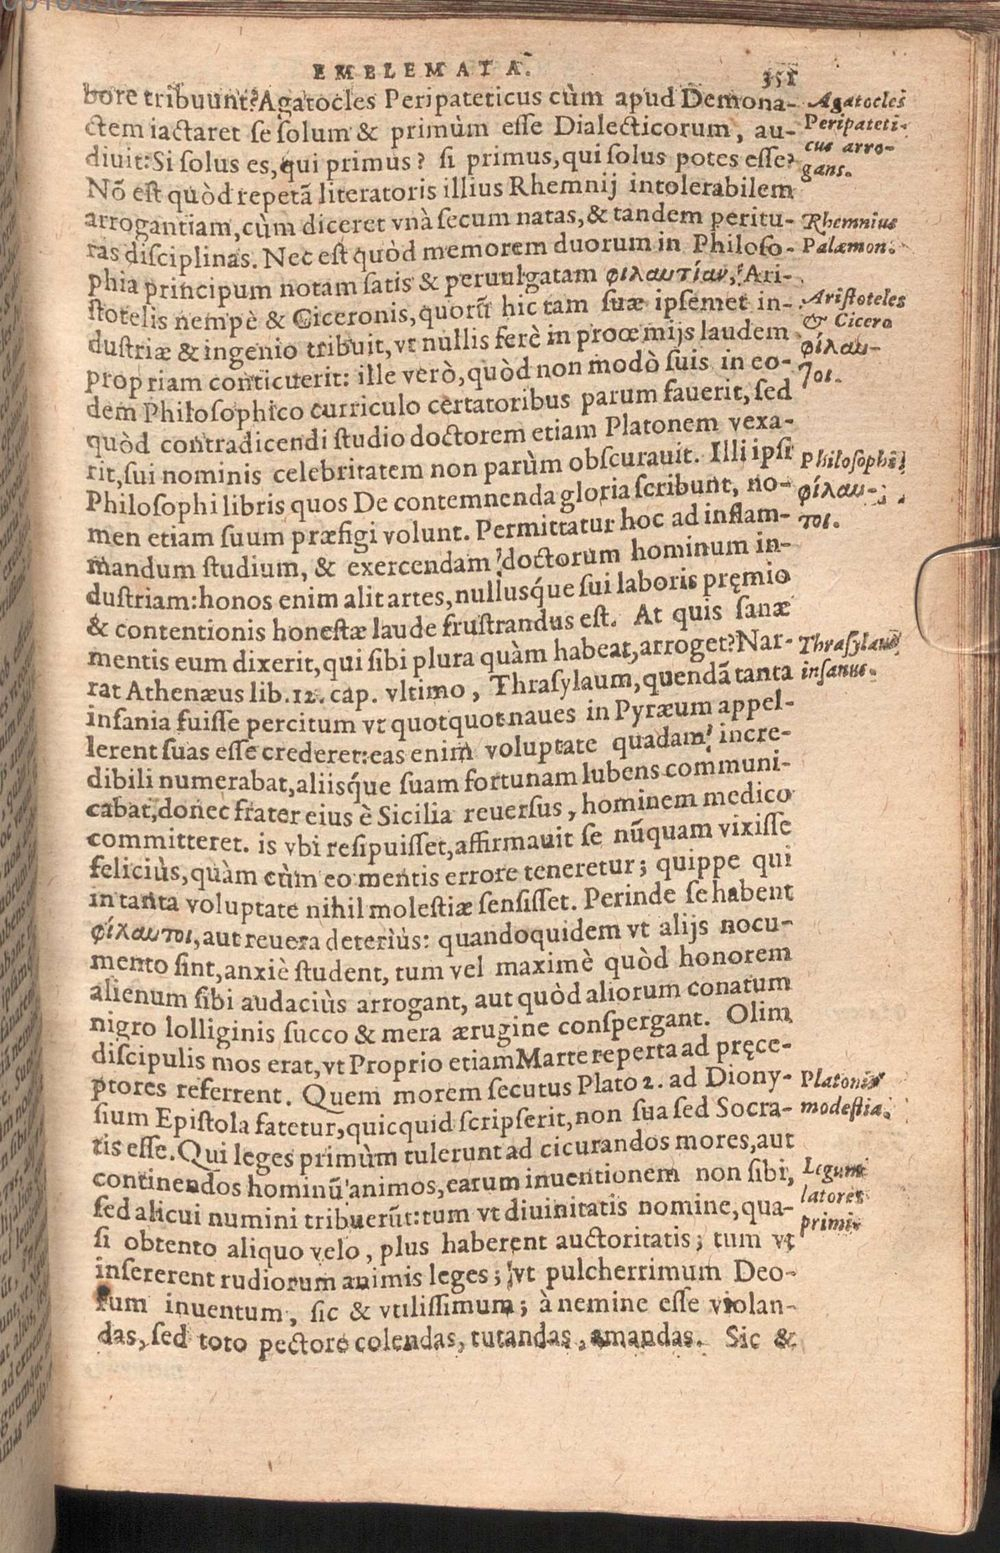 EMBLEMATA. 351
bore tribuunt? Agatocles Peripateticus cùm apud Demona-
ctem iactaret se solum & primùm esse Dialecticorum, au-
diuit: Si solus es, qui primus? si primus, qui solus potes esse?
Nõ est quòd repetã literatoris illius Rhemnij intolerabilem
arrogantiam, cùm diceret vnà secum natas, & tandem peritu-
ras disciplinas. Nec est quòd memorem duorum in Philoso-
phia principum notam satis & peruulgatam φιλαυτίαν, Ari-
stotelis nempè & Ciceronis, quorũ hic tam suæ ipsemet in-
dustriæ & ingenio tribuit, vt nullis ferè in proœmijs laudem
propriam conticuerit: ille verò, quòd non modò suis in eo-
dem Philosophico curriculo certatoribus parum fauerit, sed
quòd contradicendi studio doctorem etiam Platonem vexa-
rit, sui nominis celebritatem non parùm obscurauit. Illi ipsi
Philosophi libris quos De contemnenda gloria scribunt, no-
men etiam suum præfigi volunt. Permittatur hoc ad inflam-
mandum studium, & exercendam doctorum hominum in-
dustriam: honos enim alit artes, nullusq́ue sui laboris pręmio
& contentionis honestæ laude frustrandus est. At quis sanæ
mentis eum dixerit, qui sibi plura quàm habeat, arroget? Nar-
rat Athenæus lib. 12. cap. vltimo, Thrasylaum, quendã tanta
insania fuisse percitum vt quotquot naues in Pyræum appel-
lerent suas esse crederet: eas enim voluptate quadam incre-
dibili numerabat, aliisq́ue suam fortunam lubens communi-
cabat, donec frater eius è Sicilia reuersus, hominem medico
committeret. is vbi resipuisset, affirmauit se nũquam vixisse
feliciùs, quàm cùm eo mentis errore teneretur; quippe qui
in tanta voluptate nihil molestiæ sensisset. Perinde se habent
φίλαυτοι, aut reuera deteriùs: quandoquidem vt alijs nocu-
mento sint, anxiè student, tum vel maximè quòd honorem
alienum sibi audaciùs arrogant, aut quòd aliorum conatum
nigro lolliginis succo & mera ærugine conspergant. Olim
discipulis mos erat, vt Proprio etiam Marte reperta ad pręce-
ptores referrent. Quem morem secutus Plato 2. ad Diony-
sium Epistola fatetur, quicquid scripserit, non sua sed Socra-
tis esse. Qui leges primùm tulerunt ad cicurandos mores, aut
continendos hominũ animos, earum inuentionem non sibi,
sed alicui numini tribuerũt: tum vt diuinitatis nomine, qua-
si obtento aliquo velo, plus haberent auctoritatis; tum vt
insererent rudiorum animis leges; vt pulcherrimum Deo-
rum inuentum, sic & vtilissimum; à nemine esse violan-
das, sed toto pectore colendas, tutandas, amandas. Sic &
Agatocles
Peripateti-
cus arro-
gans.
Rhemnius
Palæmon.
Aristoteles
& Cicero
φίλαυ-
τοι.
Philosophi
φίλαυ-
τοι.
Thrasylaus
insanus.
Platonis
modestia.
Legum
latores
primi